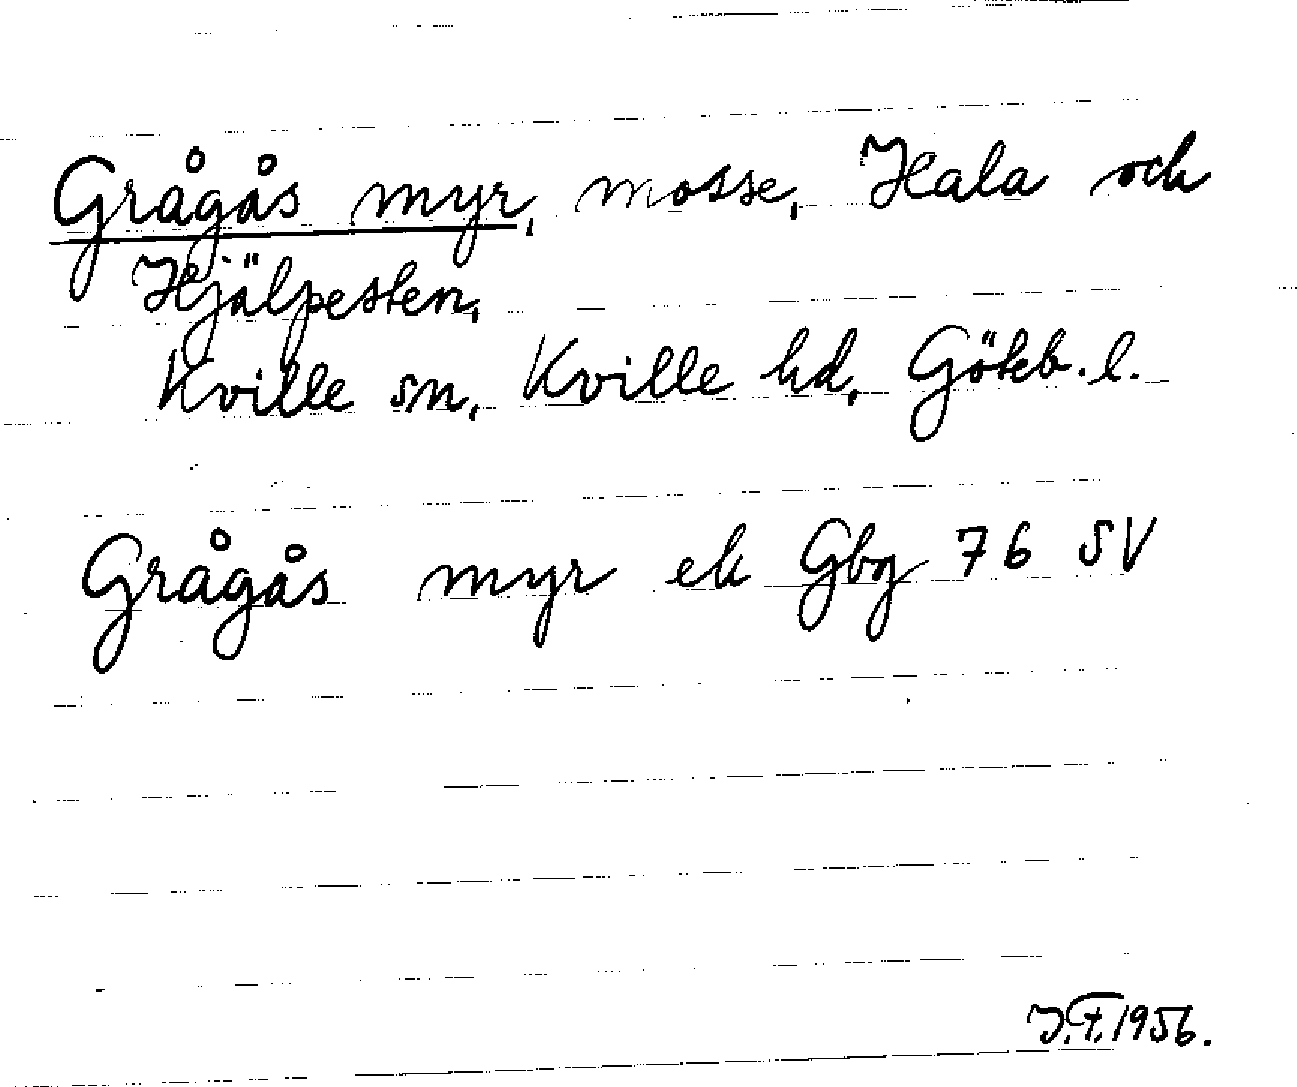 Grågås myr, mosse, Hala och
Hjälpesten,
Kville sn, Kville hd, Göteb. l.
Grågås myr ek Gbg 76 SV
J.F. 1956.